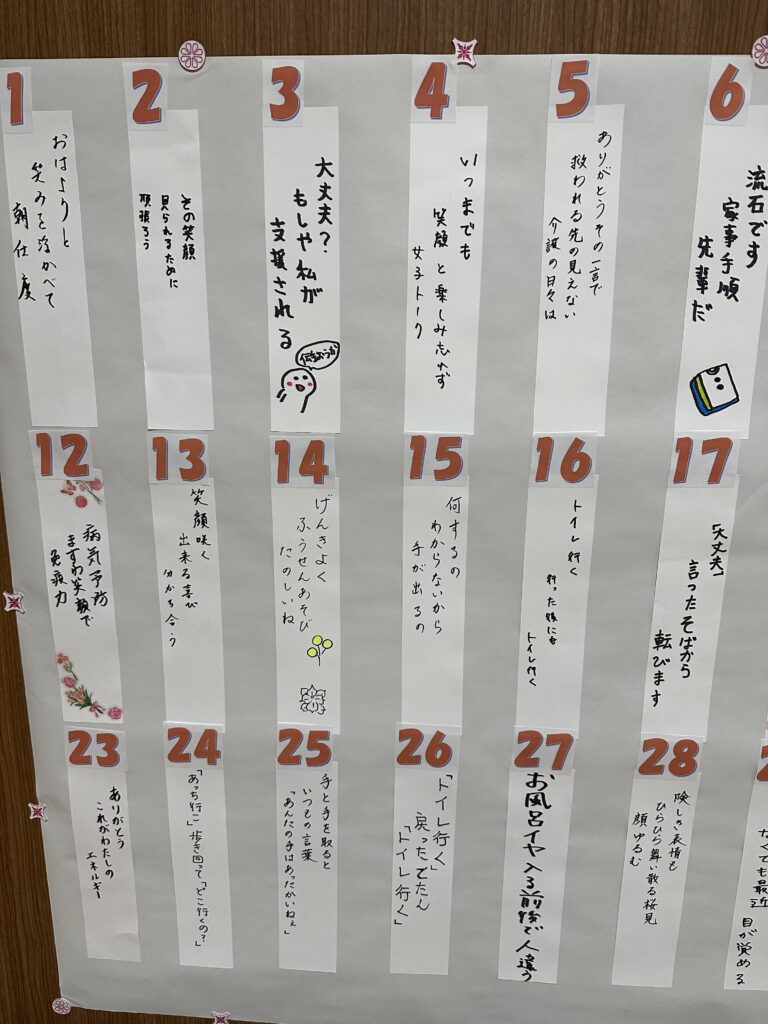 1
おはようと
笑みを浮かべて
朝仕度
2
その笑顔
見られるために
頑張ろう
3
大丈夫？
もしや私が
支援される
4
いつまでも
笑顔と楽しみ忘れず
女子トーク
5
ありがとうその一言で
救われる先の見えない
介護の日々は
6
流石です
家事手順
先輩だ
12
病気予防
ますわ笑顔で
免疫力
13
笑顔咲く
出来る喜び
分かち合う
14
げんきよく
ふうせんあそび
たのしいね
15
何するの
わからないから
手が出るの
16
トイレ行く
行った後にも
トイレ行く
17
「大丈夫」
言ったそばから
転びます
23
ありがとう
これがわたしの
エネルギー
24
「あっち行こ」歩き回って「どこ行くの？」
25
手と手を取ると
いつもの言葉
「あんたの手はあったかいねぇ」
26
「トイレ行く」
戻ったでたん
「トイレ行く」
27
お風呂イヤ入る前後で人違う
28
険しき表情も
ひらひら舞い散る桜見
顔ゆるむ
なくても最近
目が覚める